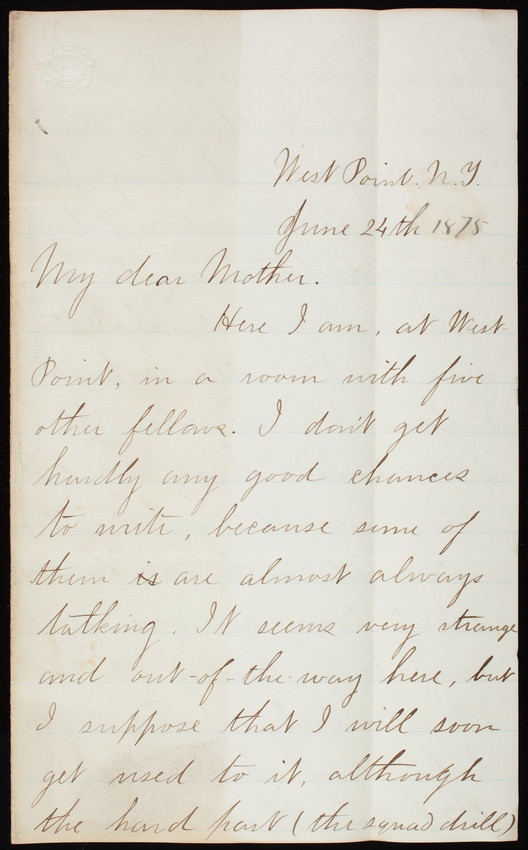 West Point. N.Y.
June 24th 1875
My dear Mother.
Here I am, at West
Point, in a room with five
other fellows. I don't get
hardly any good chances
to write, because some of
them is are almost always
talking. It seems very strange
and out-of-the-way here, but
I suppose that I will soon
get used to it, although
the hard part (the squad drill)